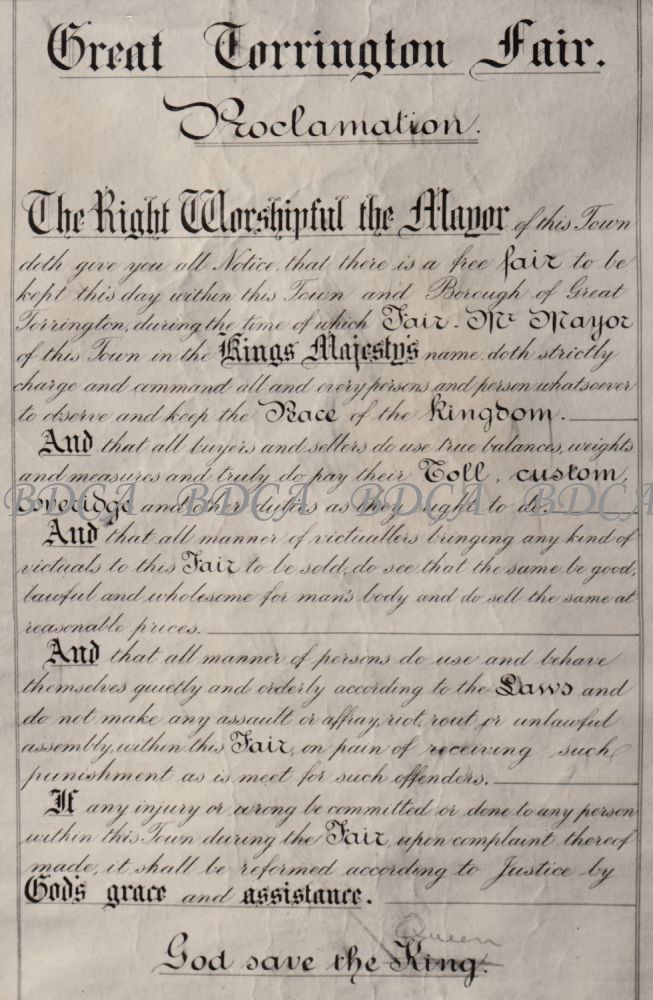 Great Torrington Fair.
Proclamation.
The Right Worshipful the Mayor of this Town
doth give you all Notice, that there is a free fair to be
kept this day within this Town and Borough of Great
Torrington, during the time of which Fair. Mr Mayor
of this Town in the Kings Majesty's name doth strictly
charge and command all and every persons and person whatsoever
to observe and keep the Peace of the kingdom.
And that all buyers and sellers do use true balances, weights
and measures and truly do pay their Toll, custom,
coveridge and other duties as they ought to do.
BDCA BDCA BDCA BDCA
And that all manner of victuallers bringing any kind of
victuals to this Fair to be sold, do see that the same be good,
lawful and wholesome for man's body and do sell the same at
reasonable prices.
And that all manner of persons do use and behave
themselves quietly and orderly according to the Laws and
do not make any assault or affray, riot, rout or unlawful
assembly, within this Fair, on pain of receiving such
punishment as is meet for such offenders.
If any injury or wrong be committed or done to any person
within this Town during the Fair, upon complaint thereof
made, it shall be reformed according to Justice by
God's grace and assistance.
Queen
God save the King.